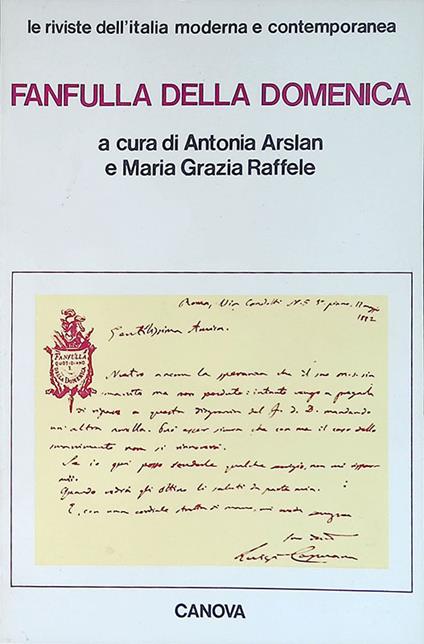 le riviste dell'italia moderna e contemporanea
FANFULLA DELLA DOMENICA
a cura di Antonia Arslan
e Maria Grazia Raffele
Roma, Via Condotti N. 5 3° piano. 11
1882
Gentilissima Amica.
FANFULLA
QUOTIDIANO
E
DELLA DOMENICA
Nutro ancora la speranza che il suo
smarrito ma non perduto: intanto vengo a pregarla
di riparare a questa disgrazia del F. d. D. mandando
un'altra novella. Può esser sicura che con me il caso dello
smarrimento non si rinnoverà.
Se io qui posso renderle qualche servizio, non mi
Quando vedrà gli Ottino li saluti da parte mia.
E, con una cordiale stretta di mano, mi creda sempre
Suo
Luigi Capuana
CANOVA